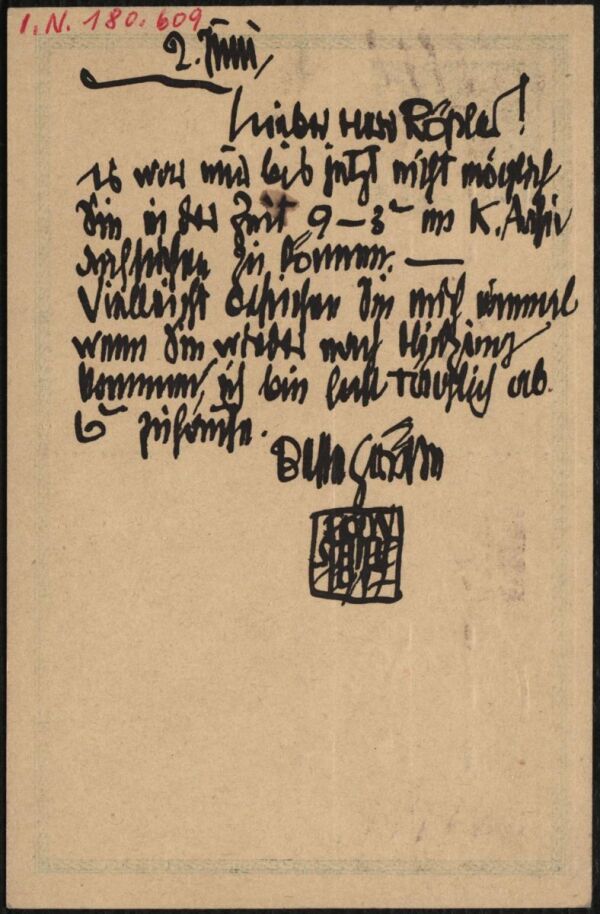 I.N. 180.609
2. Juni,
Lieber Herr Rößler!
es war mir bis jetzt nicht möglich
Sie in der Zeit 9–3 im K. Archiv
aufsuchen zu können. —
Vielleicht besuchen Sie mich einmal
wenn Sie wieder nach Hietzing
kommen, ich bin fast täglich ab
6 zuhause.
Beste Grüße
EGON
SCHIELE